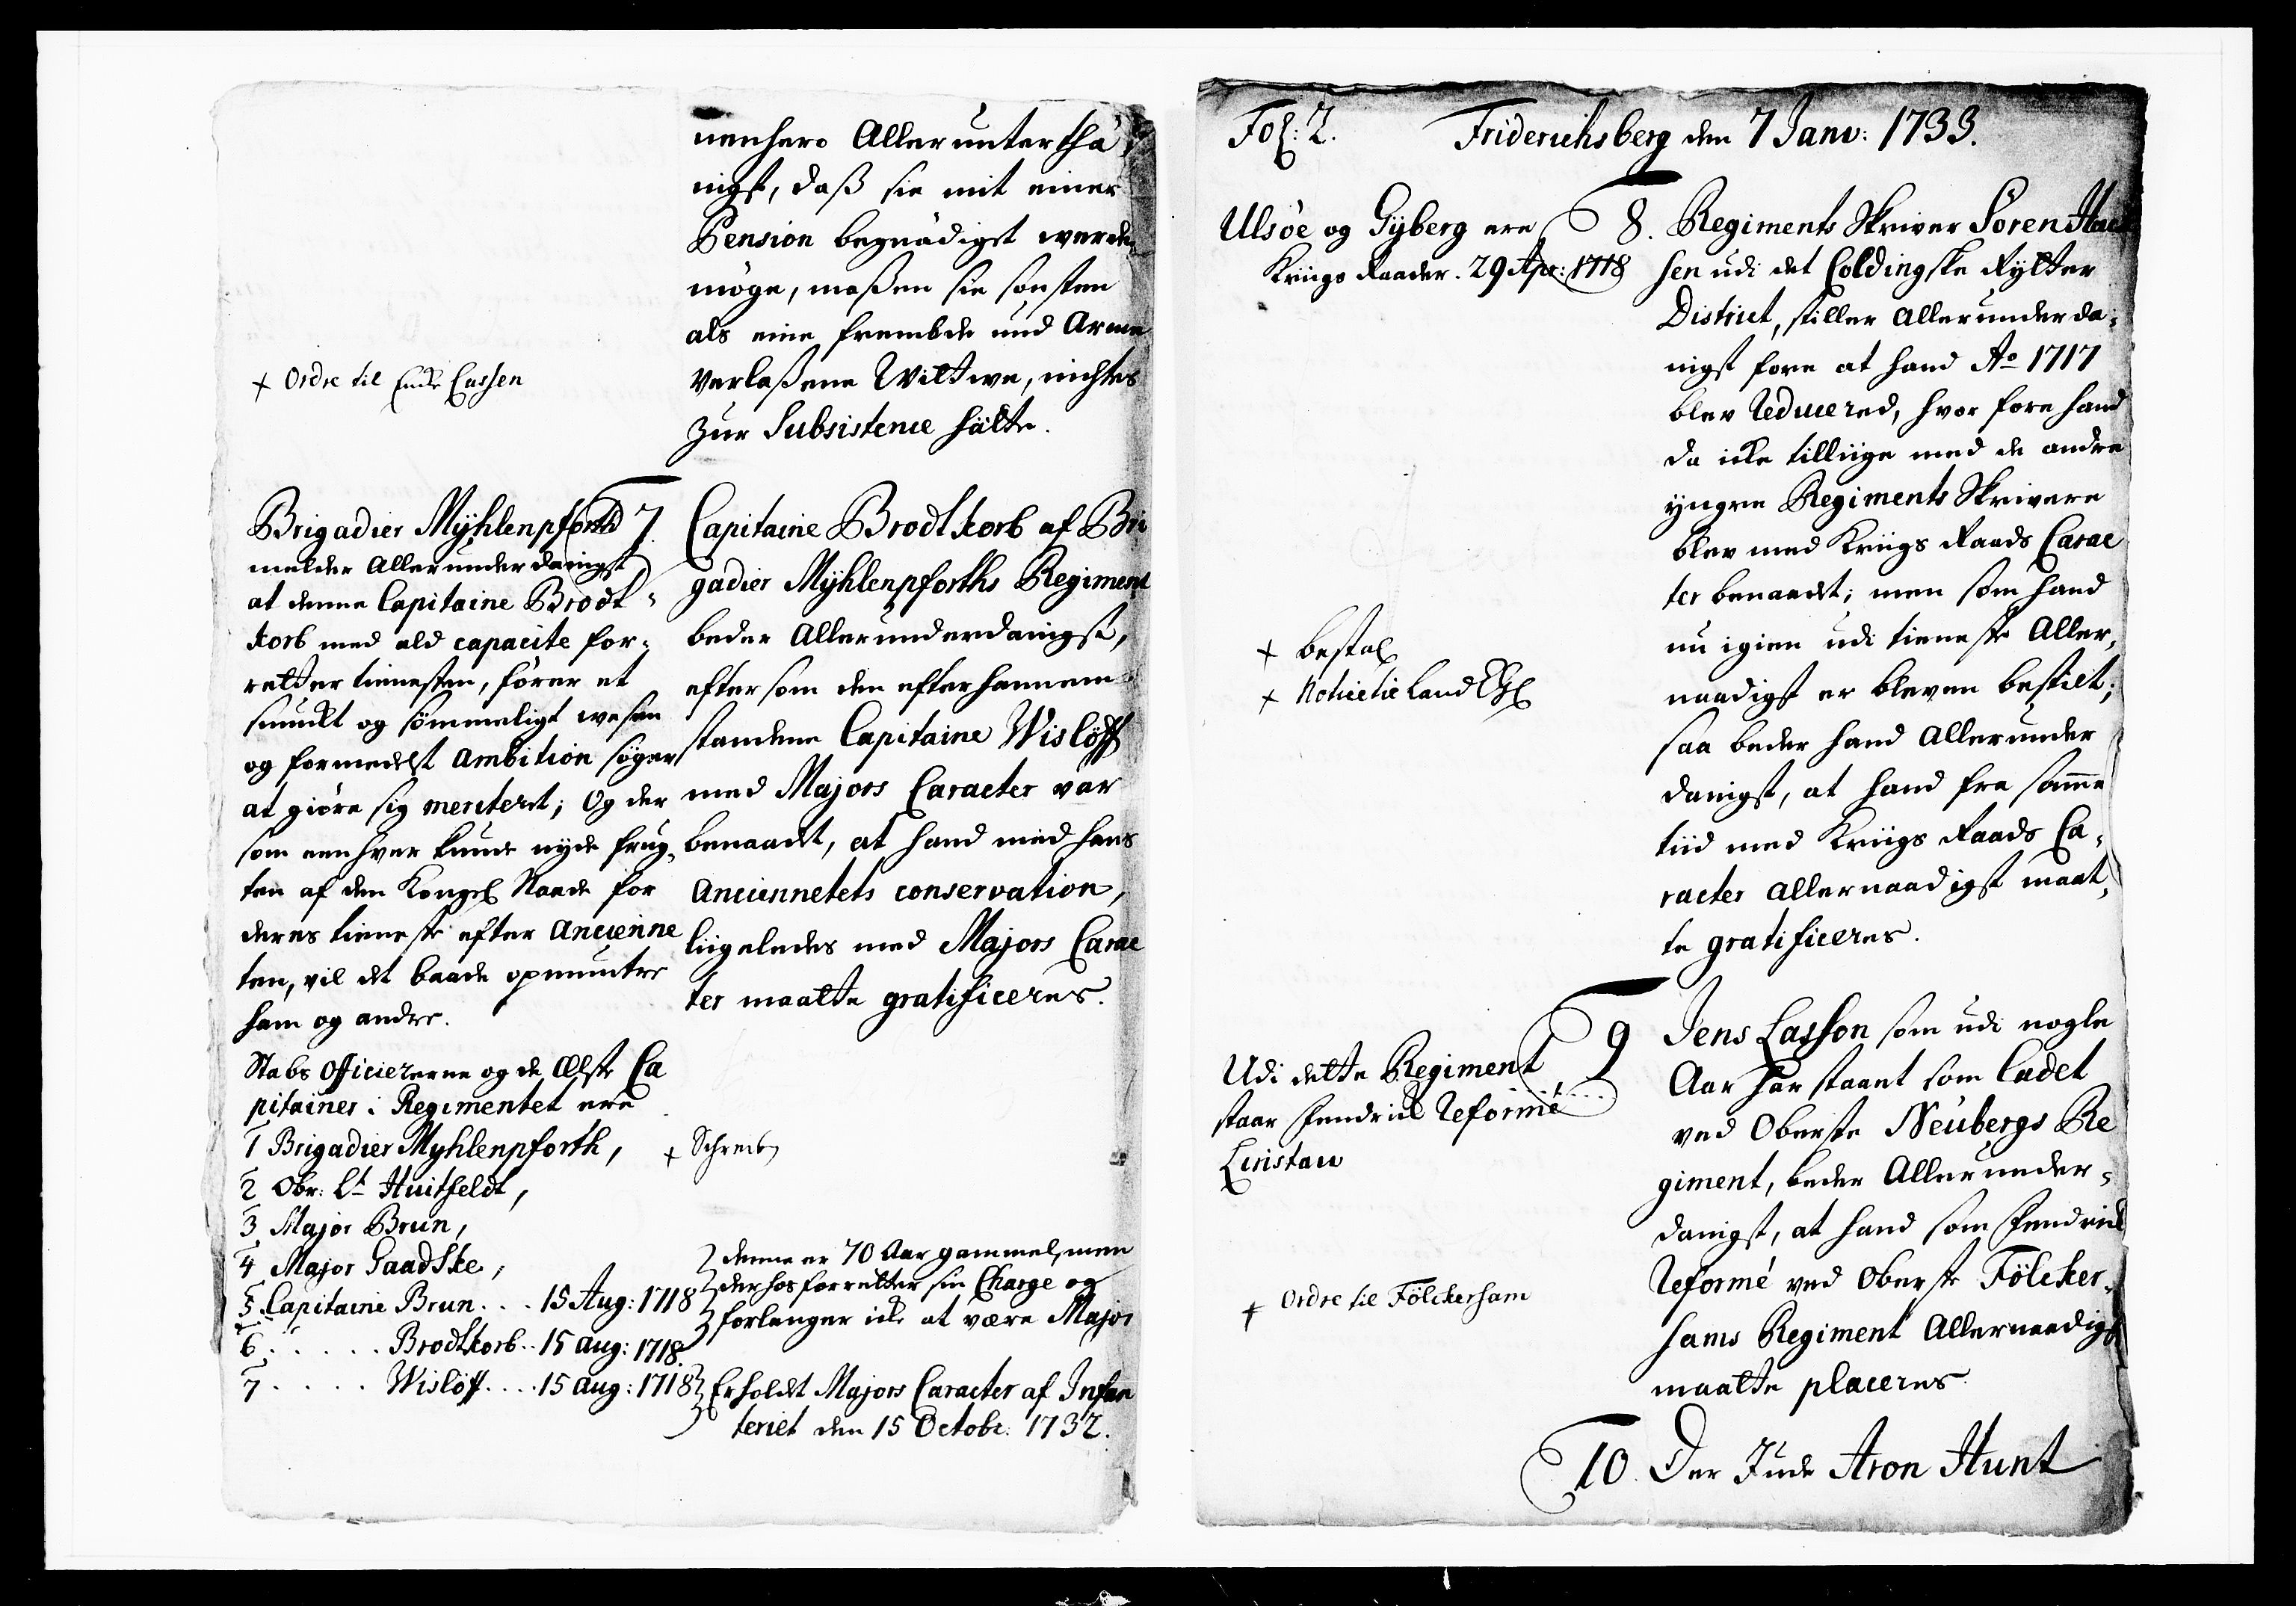 nenhero Allerunterthä
nigst, daß sie mit einer
Pension begnädiget werden
möge, maßen sie sonsten
als eine frembde und Arme
verlaßene Wittwe, nichtes
zur Subsistence hätte.
+ Ordre til Cassen
Brigadier Mÿhlenpforth
melder Allerunderdanigst
at denne Capitaine Brodt-
korb med ald capacite for-
retter tienesten, fører et
smuckt og sømmeligt wesen
og formedelst Ambition søger
at giøre sig meriteret; Og der
som een hver kunde nyde frug-
ten af den Kongel Naade for
deres tieneste efter Ancienne
ten, vil det baade opmuntre
ham og andre.
Stabs Officiererne og de Ælste Ca
pitainer i Regimentet ere
1 Brigadier Myhlenpforth,
2 Obr: Lt Huitfeldt,
3 Major Brun,
4 Major Gaadske,
5 Capitaine Brun... 15 Aug: 1718
6 ..... Brodtkorb.. 15 Aug: 1718.
7 .... Wislöff.... 15 Aug: 1718
7. Capitaine Brodtkorb af Bri
gadier Mÿhlenpforths Regiment
beder Allerunderdanigst,
eftersom den efter hannem
standene Capitaine Wislöff
med Majors Caracter var
benaadet, at hand med hans
Anciennetets conservation,
liigeledes med Majors Carac
ter maatte gratificeres.
+ Schreib
denne er 70 Aar gammel, men
der hos forretter sin Charge og
forlanger icke at være Major
Erholdt Majors Caracter af Infan
teriet den 15 Octobr: 1732.
Fol: 2. Friderichsberg den 7 Janv: 1733.
Ulsöe og Gÿberg ere
Kriigs Raader. 29 Apr: 1718
8. Regiments Skriver Sören
sen udi det Coldingske Rytter
District, stiller Allerunderda-
nigst fore at hand Ao 1717
blev Reducered, hvor fore hand
da icke tilliige med de andre
yngre Regiments Skrivere
blev med Kriigs Raads Carac
ter benaadet; men som hand
nu igien udi tieneste Aller-
naadigst er bleven bestilt;
saa beder hand Allerunder
danigst, at hand fra samme
tiid med Kriigs Raads Ca-
racter Allernaadigst maat-
te gratificeres.
+ bestal
+ Notice til Land
Udi dette Regiment
staar Fendrick Reformé
9 Jens Lasson som udi nogle
Aar har staaet som Cadet
ved Oberste Neübergs Re
giment, beder Allerunder-
danigst, at hand som Fendrick
Reformé ved Oberste Fölcker-
sams Regiment Allernaadigst
maatte placeres.
+ Ordre til Fölckersam
10. Der Jude Aron Hunt